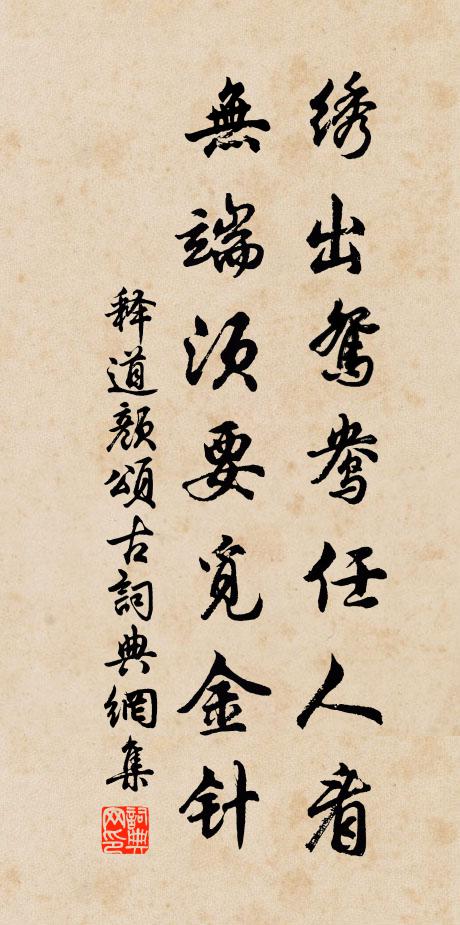 绣出鸳鸯任人看
無端须要觅金针
释道颜頌古詞典網集
詞典網印